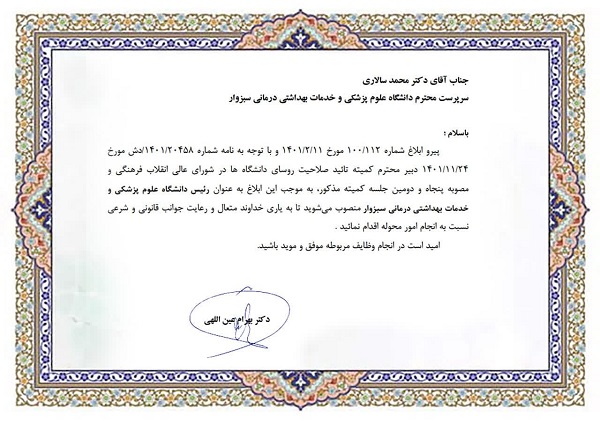 جناب آقای دکتر محمد سالاری
سرپرست محترم دانشگاه علوم پزشکی و خدمات بهداشتی درمانی سبزوار
باسلام ؛
پیرو ابلاغ شماره ۱۰۰/۱۱۲ مورخ ۱۴۰۱/۲/۱۱ و با توجه به نامه شماره ۱۴۰۱/۲۰۴۵۸/دش مورخ
۱۴۰۱/۱۱/۲۴ دبیر محترم کمیته تائید صلاحیت روسای دانشگاه ها در شورای عالی انقلاب فرهنگی و
مصوبه پنجاه و دومین جلسه کمیته مذکور، به موجب این ابلاغ به عنوان رئیس دانشگاه علوم پزشکی و
خدمات بهداشتی درمانی سبزوار منصوب می‌شوید تا به یاری خداوند متعال و رعایت جوانب قانونی و شرعی
نسبت به انجام امور محوله اقدام نمائید .
امید است در انجام وظایف مربوطه موفق و موید باشید.
دکتر بهرام عین اللهی